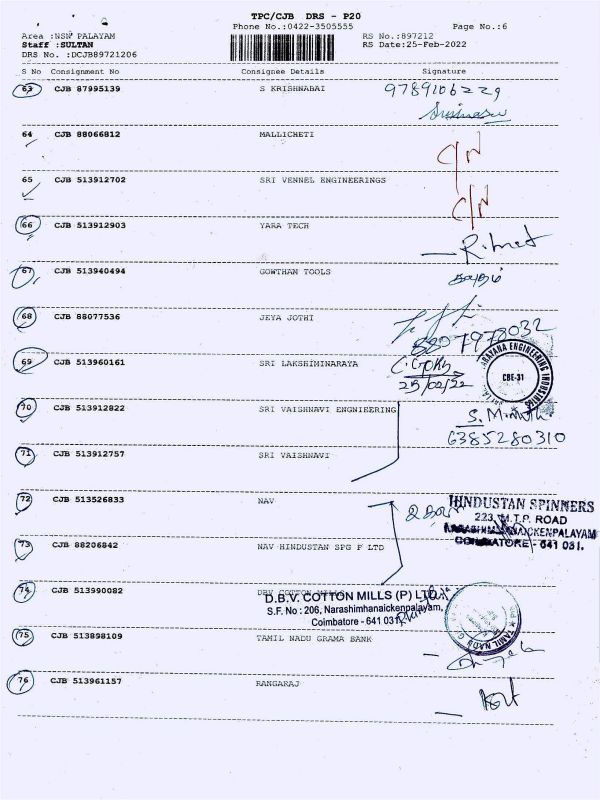 TPC/CJB DRS - P20
Phone No.:0422-3505555 Page No.:6
Area :NSN PALAYAM RS No.:897212
Staff :SULTAN RS Date:25-Feb-2022
DRS No. :DCJB89721206
S No Consignment No Consignee Details Signature
63 CJB 87995139 S KRISHNABAI 9789106229
64 CJB 88066812 MALLICHETI C/N
65 CJB 513912702 SRI VENNEL ENGINEERINGS C/N
66 CJB 513912903 YARA TECH
67 CJB 513940494 GOWTHAN TOOLS
68 CJB 88077536 JEYA JOTHI
8807978032
69 CJB 513960161 SRI LAKSHIMINARAYA
25/02/22
CBE-31
70 CJB 513912822 SRI VAISHNAVI ENGNIEERING
6385280310
71 CJB 513912757 SRI VAISHNAVI
72 CJB 513526833 NAV HINDUSTAN SPINNERS
223, M.T.P. ROAD
NARASIMHANAICKENPALAYAM
COIMBATORE - 641 031.
73 CJB 88206842 NAV HINDUSTAN SPG F LTD
74 CJB 513990082 DBV COTTON MILLS
D.B.V. COTTON MILLS (P) LTD.,
S.F. No : 206, Narashimhanaickenpalayam,
Coimbatore - 641 031
75 CJB 513898109 TAMIL NADU GRAMA BANK
76 CJB 513961157 RANGARAJ